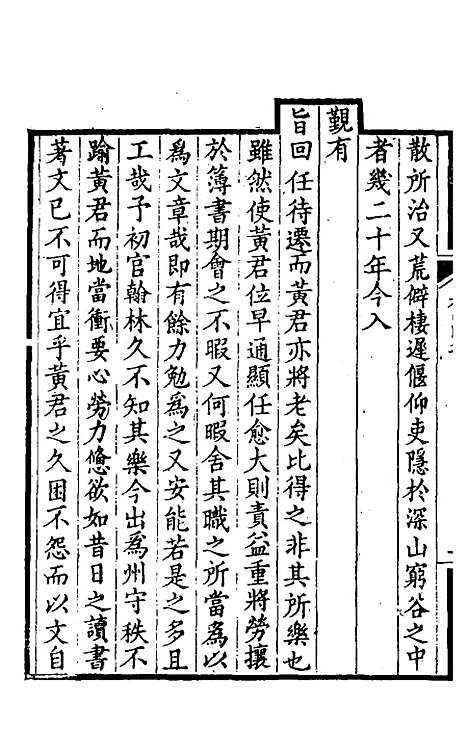 散所治又荒僻棲遲偃仰吏隱於深山窮谷之中
者幾二十年今入
覲有
旨回任待遷而黃君亦將老矣比得之非其所樂也
雖然使黃君位早通顯任愈大則責益重將勞攘
於簿書期會之不暇又何暇舍其職之所當為以
為文章哉即有餘力勉為之又安能若是之多且
工哉予初官翰林久不知其樂今出為州守秩不
踰黃君而地當衝要心勞力憊欲如昔日之讀書
著文已不可得宜乎黃君之久困不怨而以文自